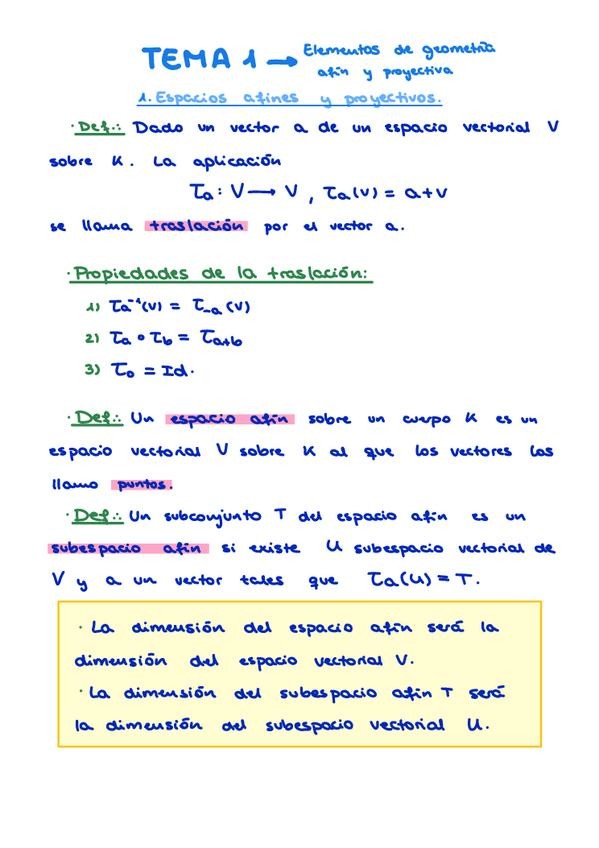 TEMA 1 → Elementos de geometría
afín y proyectiva
1. Espacios afines y proyectivos.
· Def.: Dado un vector a de un espacio vectorial V
sobre K. La aplicación
τa : V → V , τa(v) = a+v
se llama traslación por el vector a.
· Propiedades de la traslación:
1) τa⁻¹(v) = τ₋a(v)
2) τa ∘ τb = τa+b
3) τ₀ = Id.
· Def.: Un espacio afín sobre un cuerpo K es un
espacio vectorial V sobre K al que los vectores los
llamo puntos.
· Def.: Un subconjunto T del espacio afín es un
subespacio afín si existe U subespacio vectorial de
V y a un vector tales que τa(U) = T.
· La dimensión del espacio afín será la
dimensión del espacio vectorial V.
· La dimensión del subespacio afín T será
la dimensión del subespacio vectorial U.